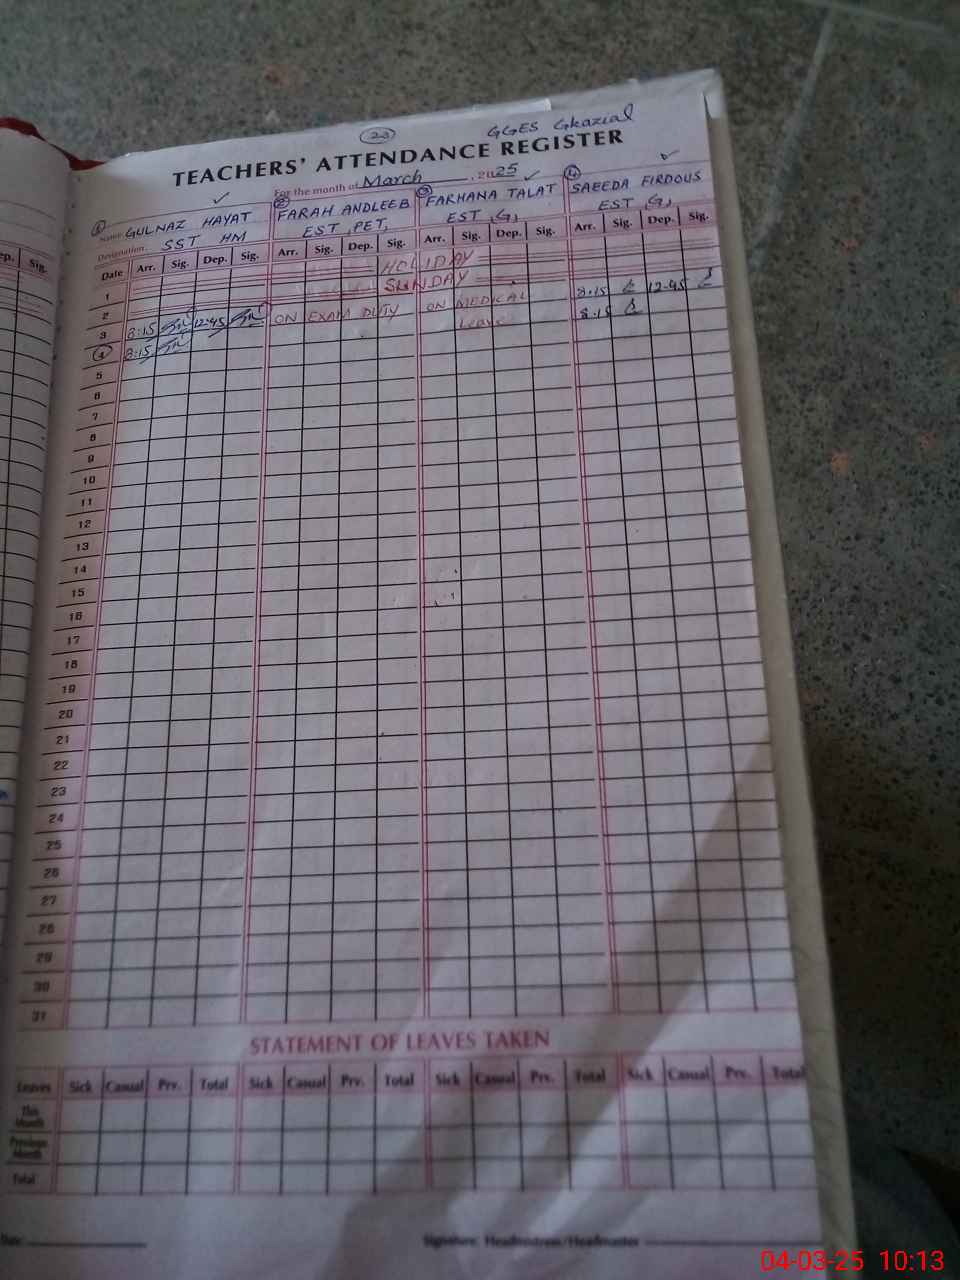 23
GGES Gkazial
TEACHERS' ATTENDANCE REGISTER
For the month of March, 2025
1 2 3 4
Name GULNAZ HAYAT FARAH ANDLEEB FARHANA TALAT SAEEDA FIRDOUS
Designation. SST HM EST, PET, EST (G) EST (G)
Date Arr. Sig. Dep. Sig. Arr. Sig. Dep. Sig. Arr. Sig. Dep. Sig. Arr. Sig. Dep. Sig.
1 HOLIDAY
2 SUNDAY
3 8:15 12:45 ON EXAM DUTY ON MEDICAL Leave 8.15 12.45
4 8:15 8.15
5
6
7
8
9
10
11
12
13
14
15
16
17
18
19
20
21
22
23
24
25
26
27
28
29
30
31
STATEMENT OF LEAVES TAKEN
Leaves Sick Casual Prv. Total Sick Casual Prv. Total Sick Casual Prv. Total Sick Casual Prv. Total
This Month
Previous Month
Total
Date: Signature: Headmistress/Headmaster
04-03-25 10:13